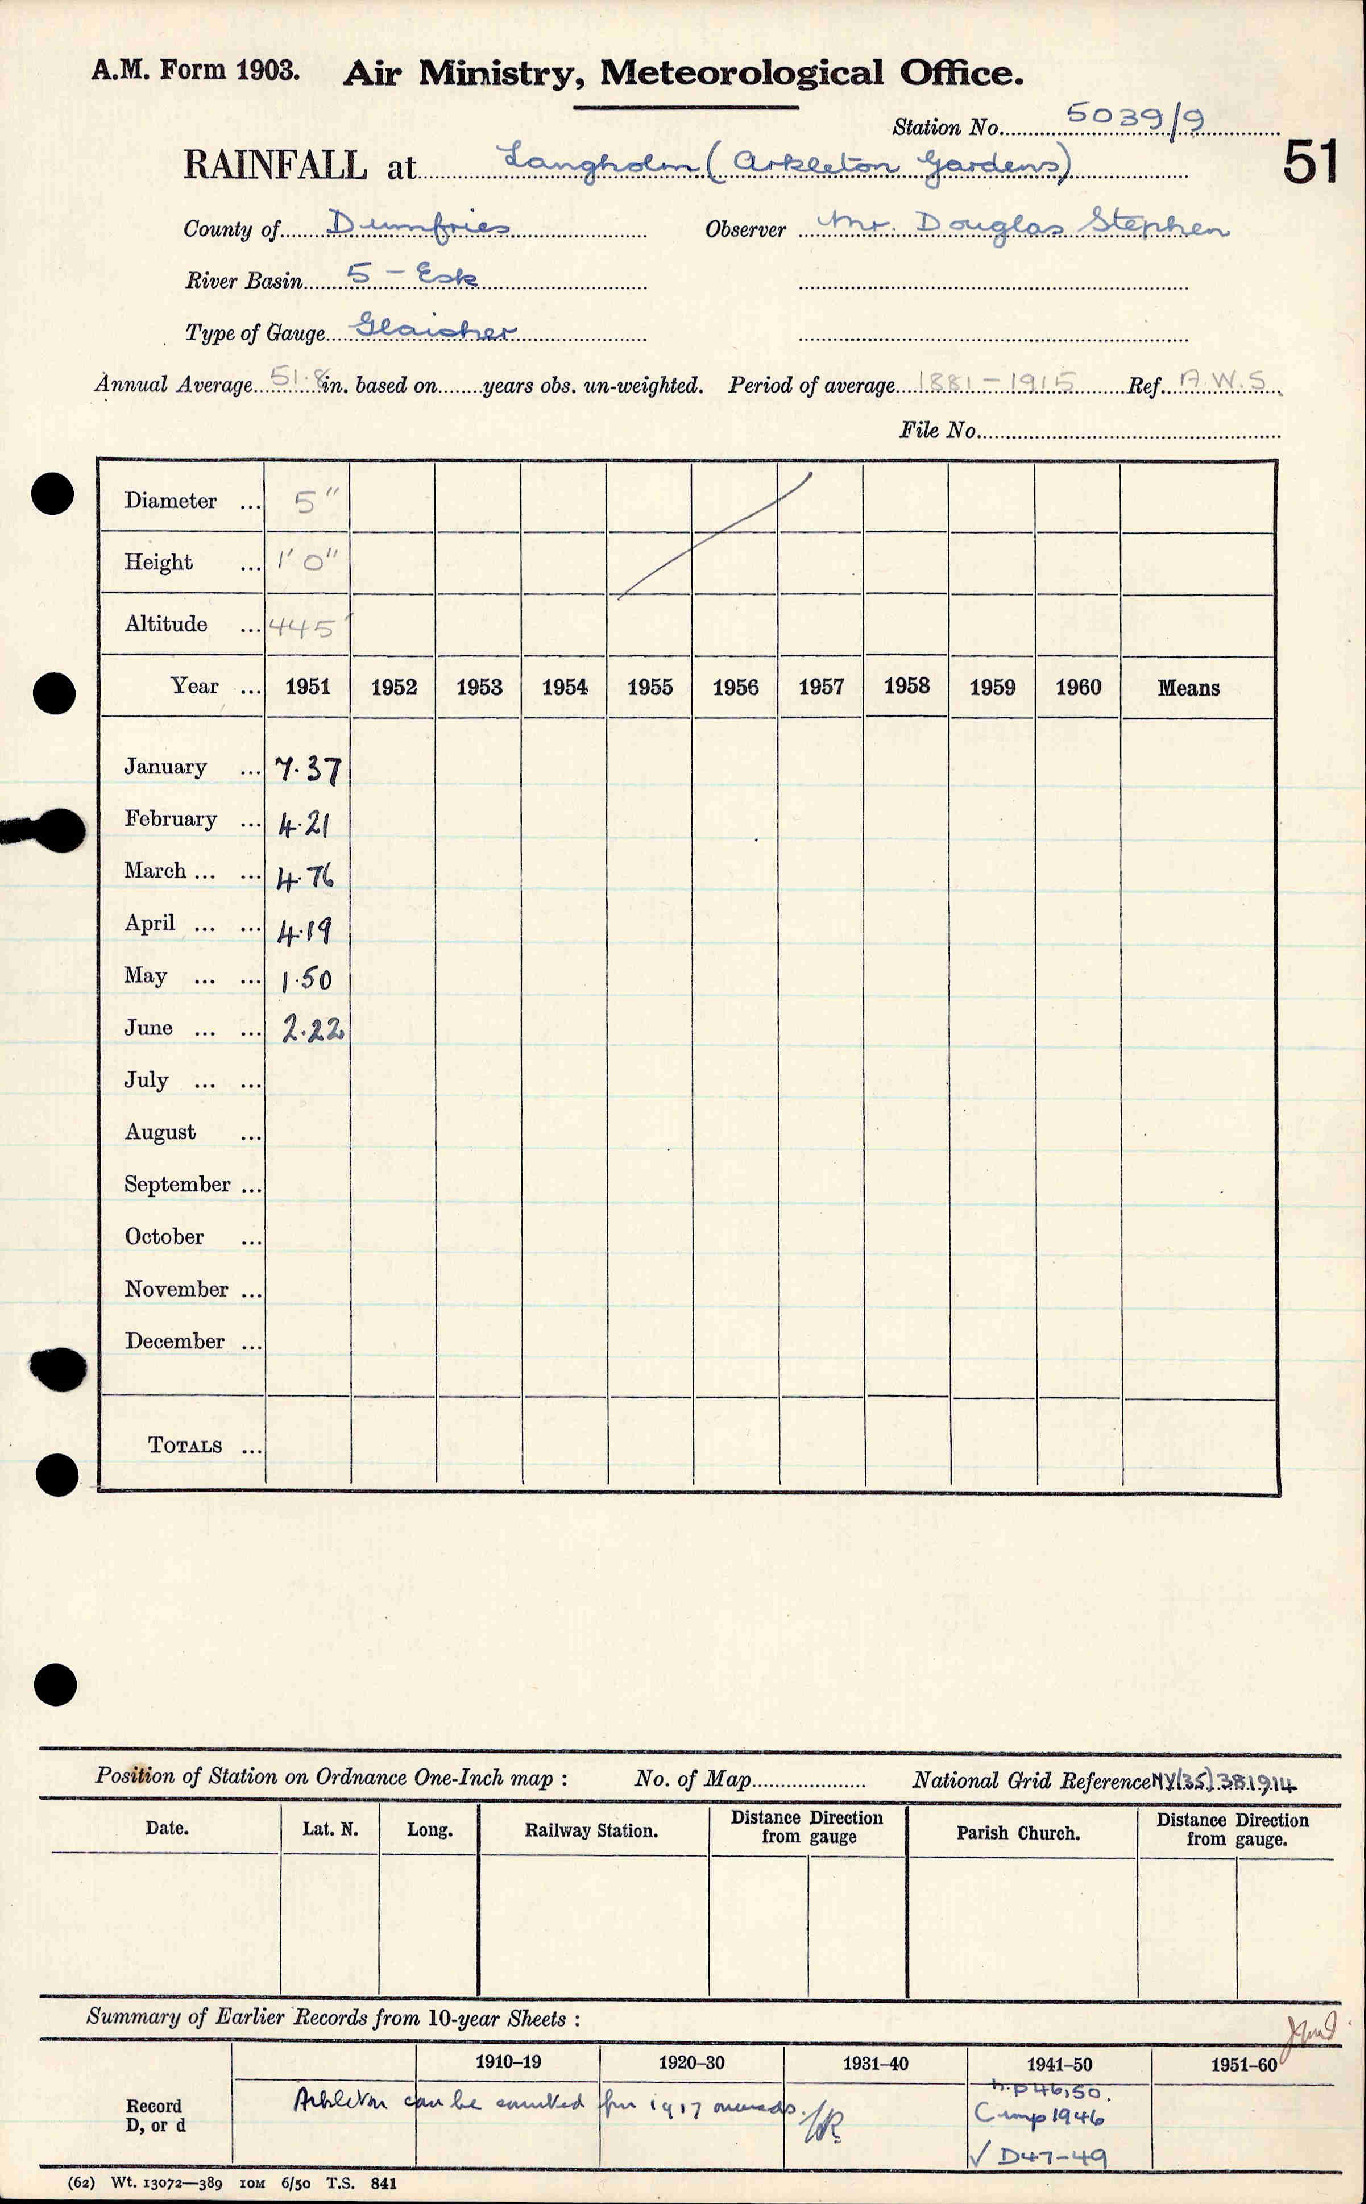 A.M. Form 1903. Air Ministry, Meteorological Office.
Station No. 5039/9
RAINFALL at Langholm (Arkleton Gardens)
51
County of Dumfries Observer Mr. Douglas Stephen
River Basin 5 - Esk
Type of Gauge Glaisher
Annual Average 51.8 in. based on years obs. un-weighted. Period of average 1881-1915 Ref. A.W.S.
File No.
Diameter ... 5"
Height ... 1' 0"
Altitude ... 445'
Year ... 1951 1952 1953 1954 1955 1956 1957 1958 1959 1960 Means
January ... 7.37
February ... 4.21
March ... ... 4.76
April ... ... 4.19
May ... ... 1.50
June ... ... 2.22
July ... ...
August ...
September ...
October ...
November ...
December ...
TOTALS ...
Position of Station on Ordnance One-Inch map : No. of Map National Grid Reference NY(35)381914
Date. Lat. N. Long. Railway Station. Distance Direction from gauge Parish Church. Distance Direction from gauge.
Summary of Earlier Records from 10-year Sheets :
1910-19 1920-30 1931-40 1941-50 1951-60
Record D, or d
Arkleton can be counted for 1917 onwards.
n.p 46,50.
Comp 1946
√ D47-49
(62) Wt. 13072—389 10M 6/50 T.S. 841